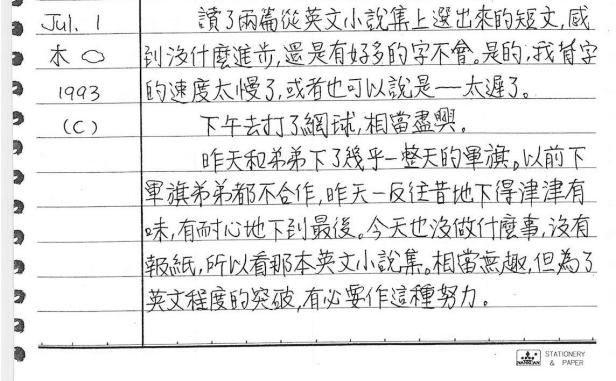 Jul. 1
木 ○
1993
(C)
讀了兩篇從英文小說集上選出來的短文,感
到沒什麼進步,還是有好多的字不會。是的,我背字
的速度太慢了,或者也可以說是——太遲了。
下午去打了網球,相當盡興。
昨天和弟弟下了幾乎一整天的軍旗。以前下
軍旗弟弟都不合作,昨天一反往昔地下得津津有
味,有耐心地下到最後。今天也沒做什麼事,沒有
報紙,所以看那本英文小說集。相當無趣,但為了
英文程度的突破,有必要作這種努力。
STATIONERY
& PAPER